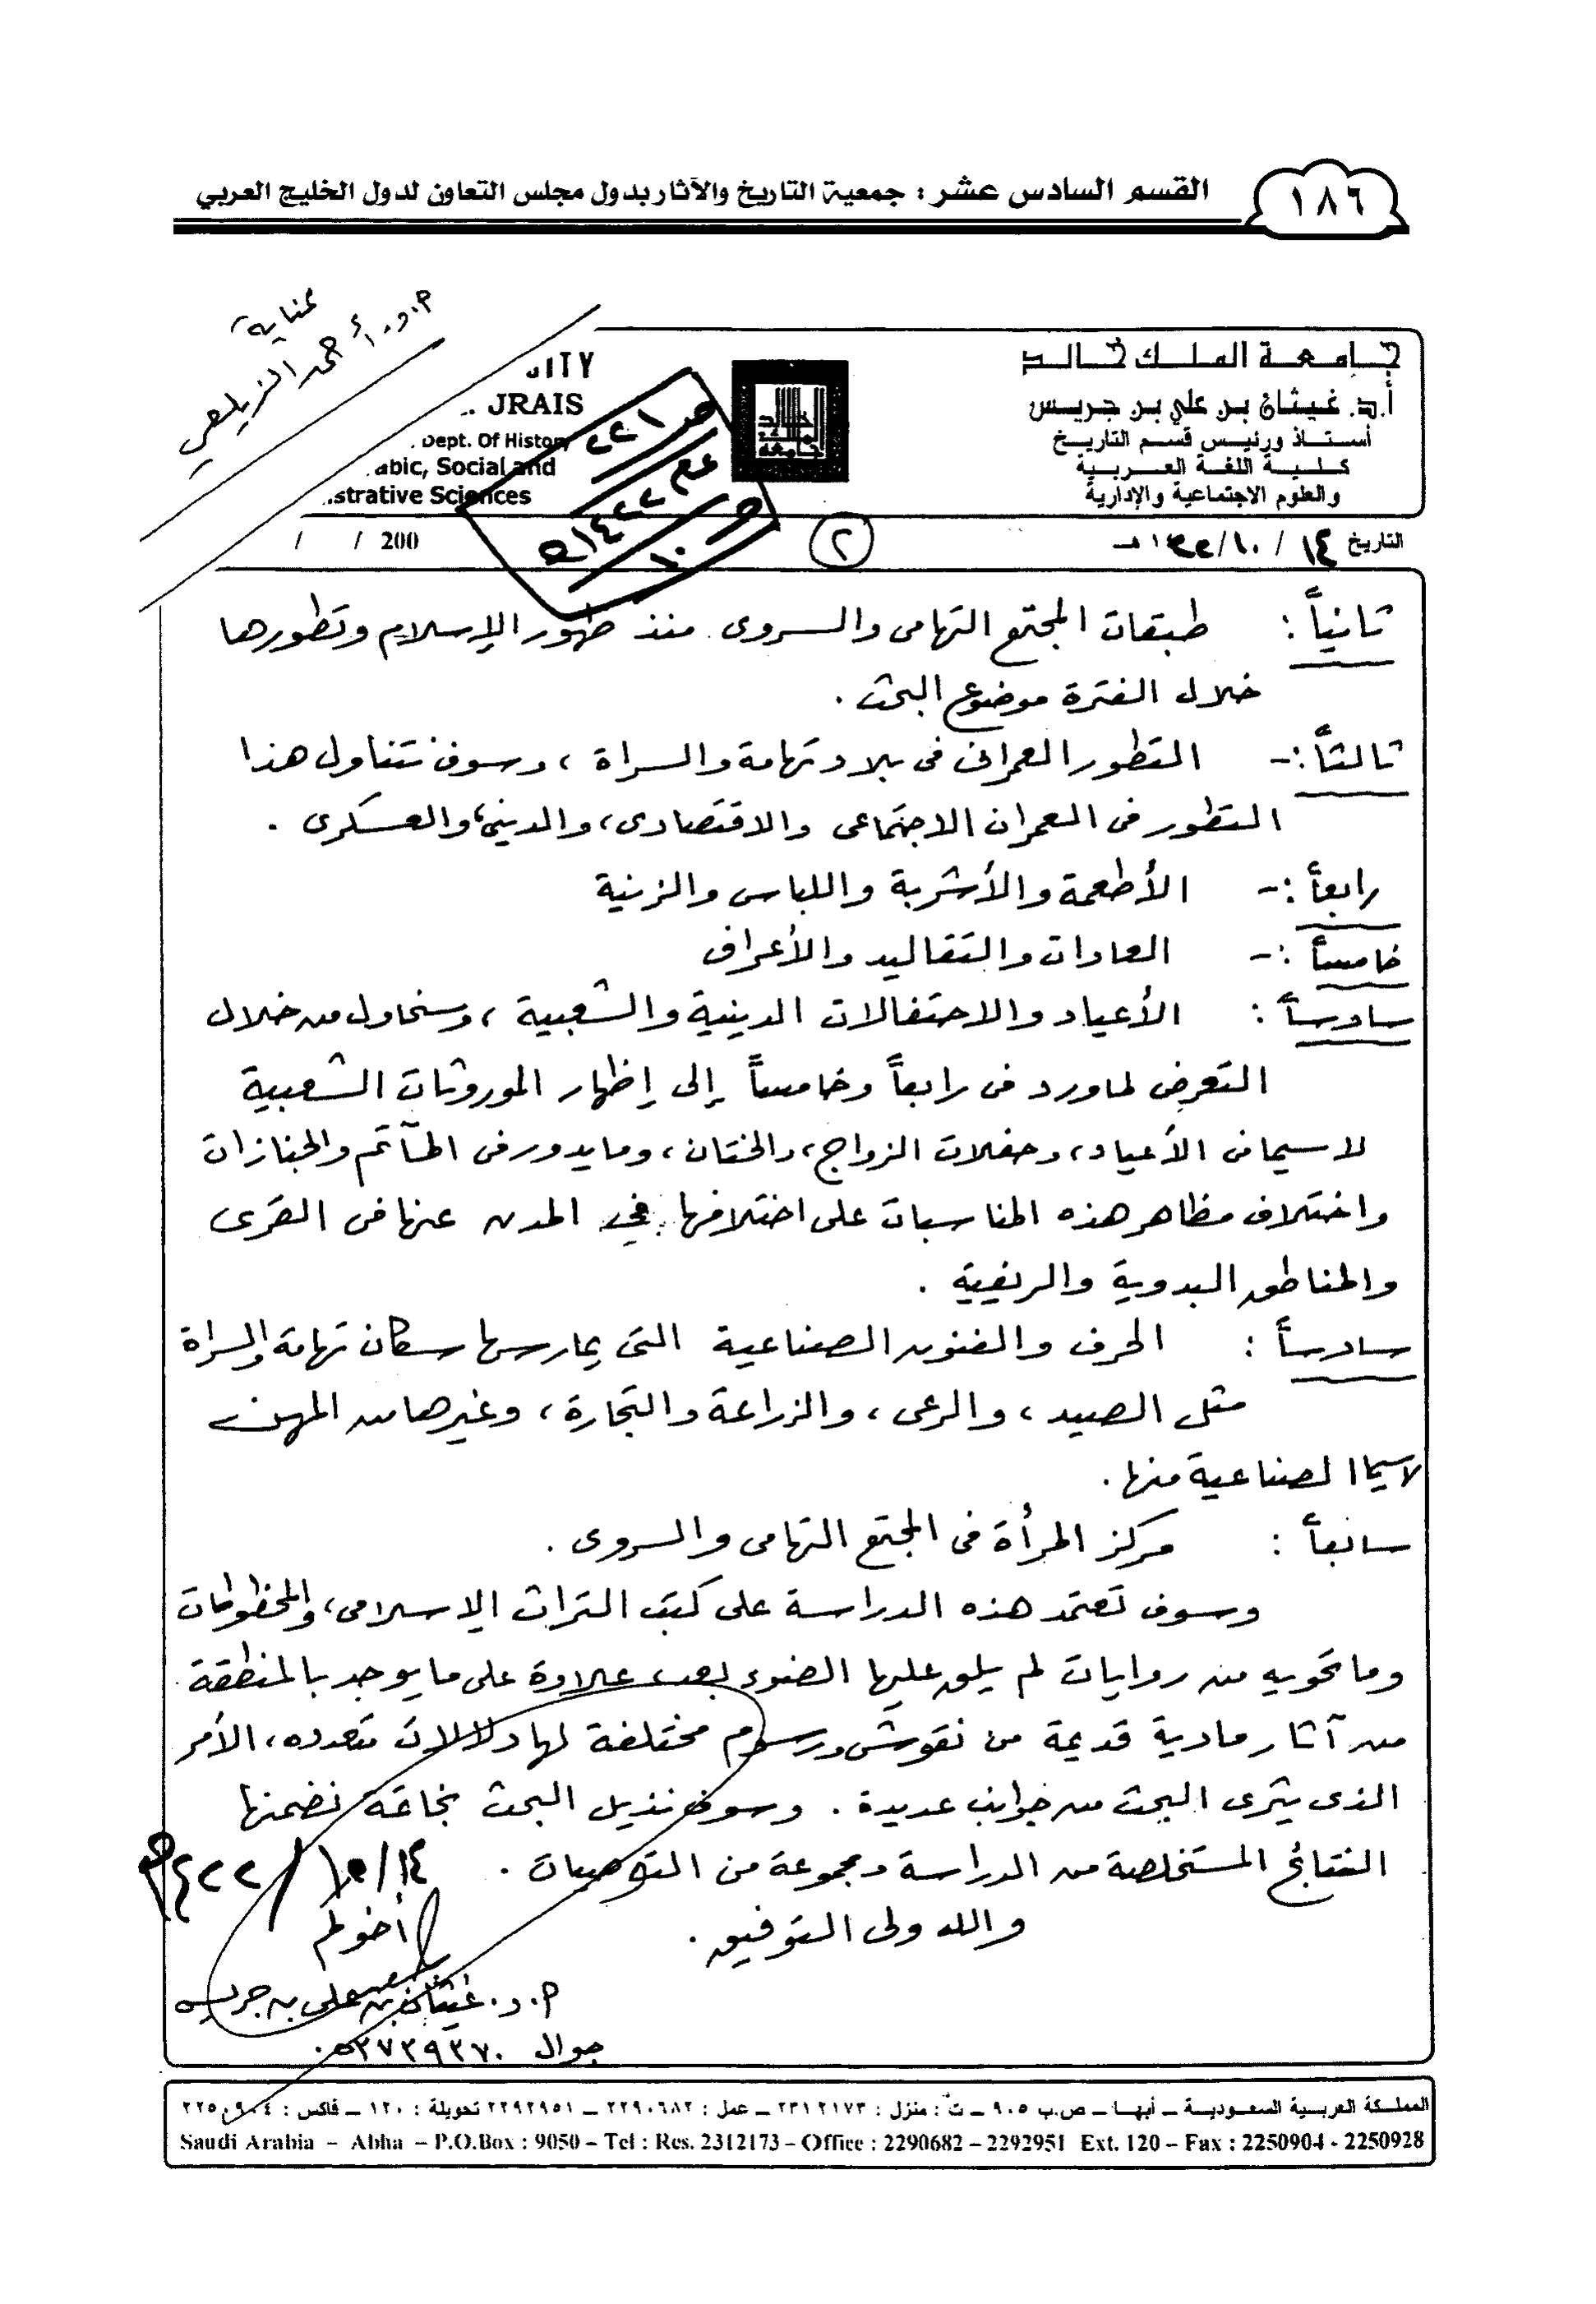 ١٨٦
القسم السادس عشر : جمعية التاريخ والآثار بدول مجلس التعاون لدول الخليج العربي
عناية
أ.د. أحمد الزيلعي
جامعة الملك خالد
أ.د. غيثان بن علي بن جريس
أستاذ ورئيس قسم التاريخ
كلية اللغة العربية
والعلوم الاجتماعية والإدارية
JRAIS
Dept. Of History
abic, Social and
strative Sciences
صـ ٢٢١
عام ١٤٢٢هـ
التاريخ ١٤ / ١٠ /
٢
/ / 200
ثانياً : طبقات المجتمع التهامى والسروى منذ ظهور الإسلام وتطورها
خلال الفترة موضوع البحث .
ثالثاً :- التطور العمرانى فى بلاد تهامة والسراة ، وسوف نتناول هذا
التطور فى العمران الاجتماعى والاقتصادى، والدينى، والعسكرى .
رابعاً :- الأطعمة والأشربة واللباس والزينة
خامساً :- العادات والتقاليد والأعراف
سادساً : الأعياد والاحتفالات الدينية والشعبية ، وسنحاول من خلال
التعرض لما ورد فى رابعاً وخامساً إلى إظهار الموروثات الشعبية
لا سيما فى الأعياد، وحفلات الزواج، والختان، وما يدور فى المآتم والجنازات
واختلاف مظاهر هذه المناسبات على اختلافها في المدن عنها فى القرى
والمناطق البدوية والريفية .
سادساً : الحرف والفنون الصناعية التى يمارسها سكان تهامة والسراة
مثل الصيد ، والرعى ، والزراعة والتجارة ، وغيرها من المهن
لاسيما الصناعية منها .
سابعاً : مركز المرأة فى المجتمع التهامى والسروى .
وسوف تعتمد هذه الدراسة على كتب التراث الإسلامى، والمخطوطات
وما تحويه من روايات لم يلق عليها الضوء بعد علاوة على ما يوجد بالمنطقة
من آثار مادية قديمة من نقوش ورسوم مختلفة لها دلالات متعدده، الأمر
الذى يثرى البحث من جوانب عديدة . وسوف نذيل البحث بخاتمة نضمنها
النتائج المستخلصة من الدراسة ومجموعة من التوصيات .
١٤/١٠/١٤٢٢هـ
والله ولى التوفيق .
أخوكم
أ.د. غيثان بن على بن جريس
جوال ٠٥٣٧٣٩٣٧٠
المملكة العربية السعودية – أبها – ص.ب ٩٠٥ – ت : منزل : ٢٣١٢١٧٣ – عمل : ٢٢٩٠٦٨٢ – ٢٢٩٢٩٥١ تحويلة : ١٢٠ – فاكس : ٢٢٥٠٩٠٤
Saudi Arabia – Abha – P.O.Box : 9050 – Tel : Res. 2312173 – Office : 2290682 – 2292951 Ext. 120 – Fax : 2250904 - 2250928